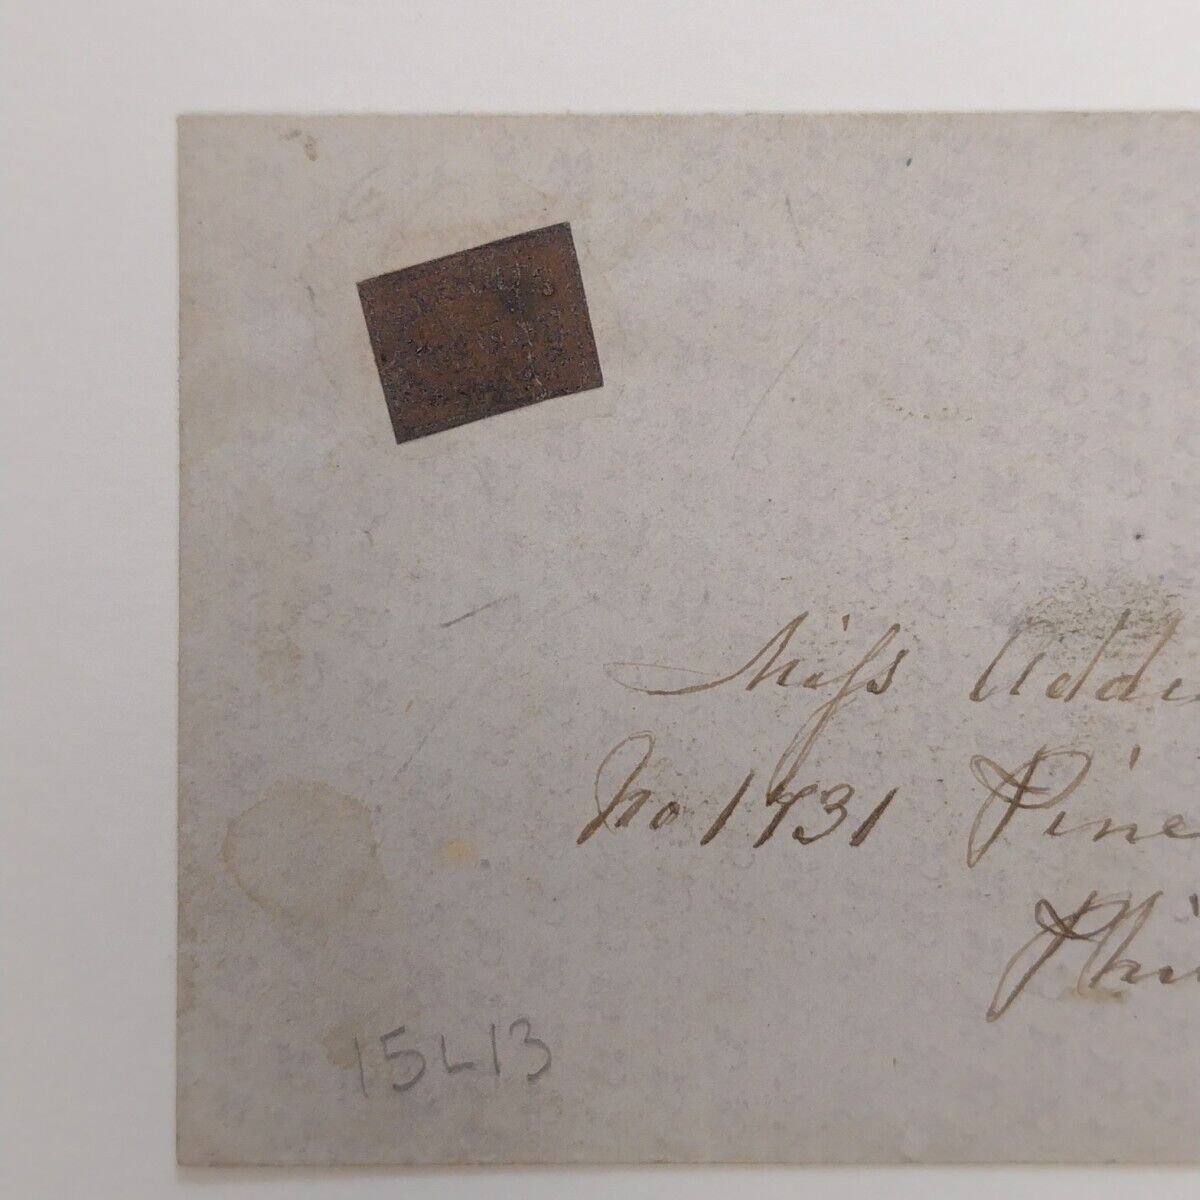 Miss Addi
No 1731 Pine
Phi
15L13